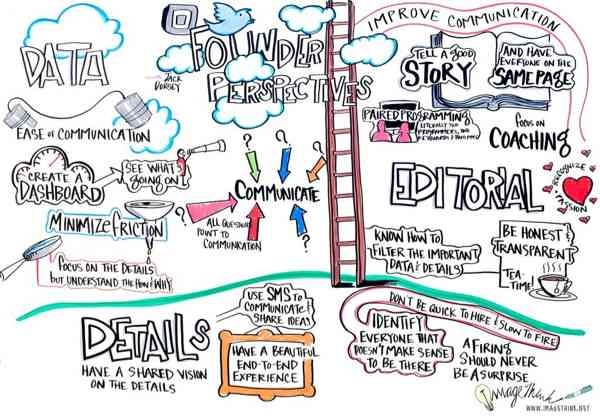 DATA
FOUNDER
PERSPECTIVES
JACK
DORSEY
EASE OF COMMUNICATION
CREATE A
DASHBOARD
SEE WHAT'S
GOING ON
MINIMIZE FRICTION
FOCUS ON THE DETAILS
BUT UNDERSTAND THE HOW & WHY
?
?
?
?
?
COMMUNICATE
ALL QUESTIONS
POINT TO
COMMUNICATION
IMPROVE COMMUNICATION
TELL A GOOD
STORY
AND HAVE
EVERYONE ON THE
SAME PAGE
PAIRED PROGRAMMING
LITERALLY TWO
PROGRAMMERS, TWO
KEYBOARDS
FOCUS ON
COACHING
EDITORIAL
RECOGNIZE
PASSION
KNOW HOW TO
FILTER THE IMPORTANT
DATA & DETAILS
BE HONEST &
TRANSPARENT
TEA-
TIME!
DETAILS
HAVE A SHARED VISION
ON THE DETAILS
USE SMS TO
COMMUNICATE &
SHARE IDEAS
HAVE A BEAUTIFUL
END-TO-END
EXPERIENCE
DON'T BE QUICK TO HIRE & SLOW TO FIRE
IDENTIFY
EVERYONE THAT
DOESN'T MAKE SENSE
TO BE THERE
A FIRING
SHOULD NEVER
BE A SURPRISE
ImageThink
WWW.IMAGETHINK.NET